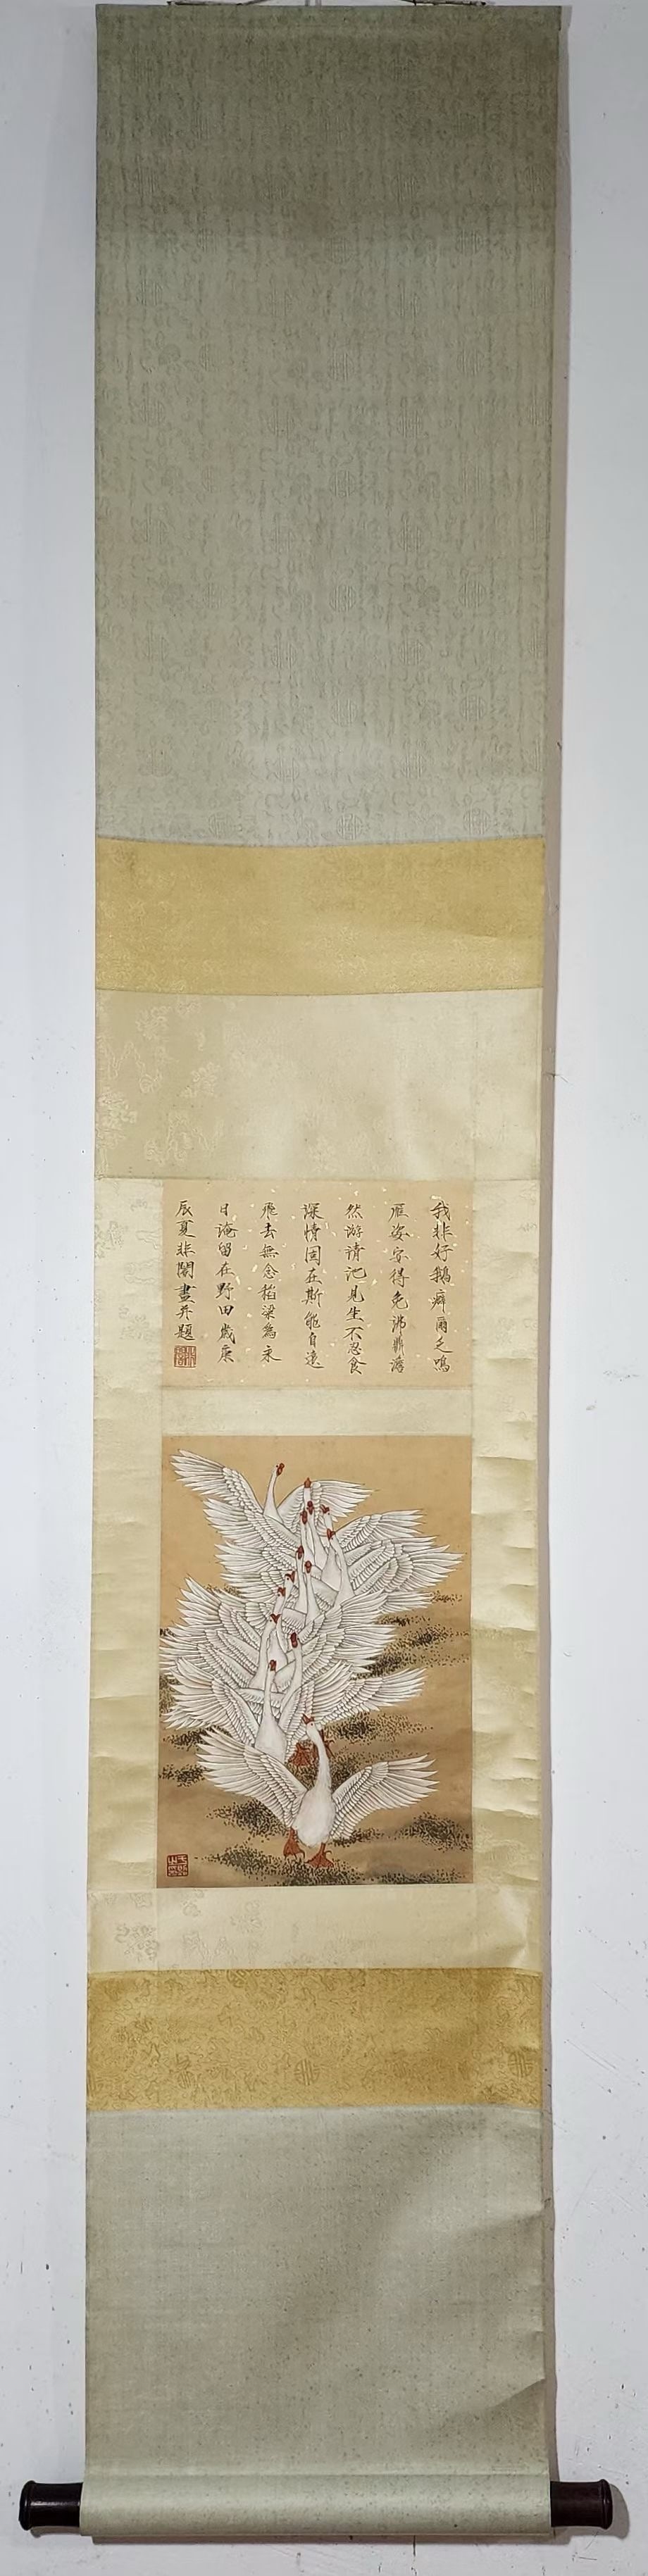 我非好鵝癖爾乏鳴
雁姿安得免沸鼎澹
然游清池見生不忍食
深情固在斯能自遠
飛去無念稻粱為永
日淹留在野田歲庚
辰夏非闇畫并題